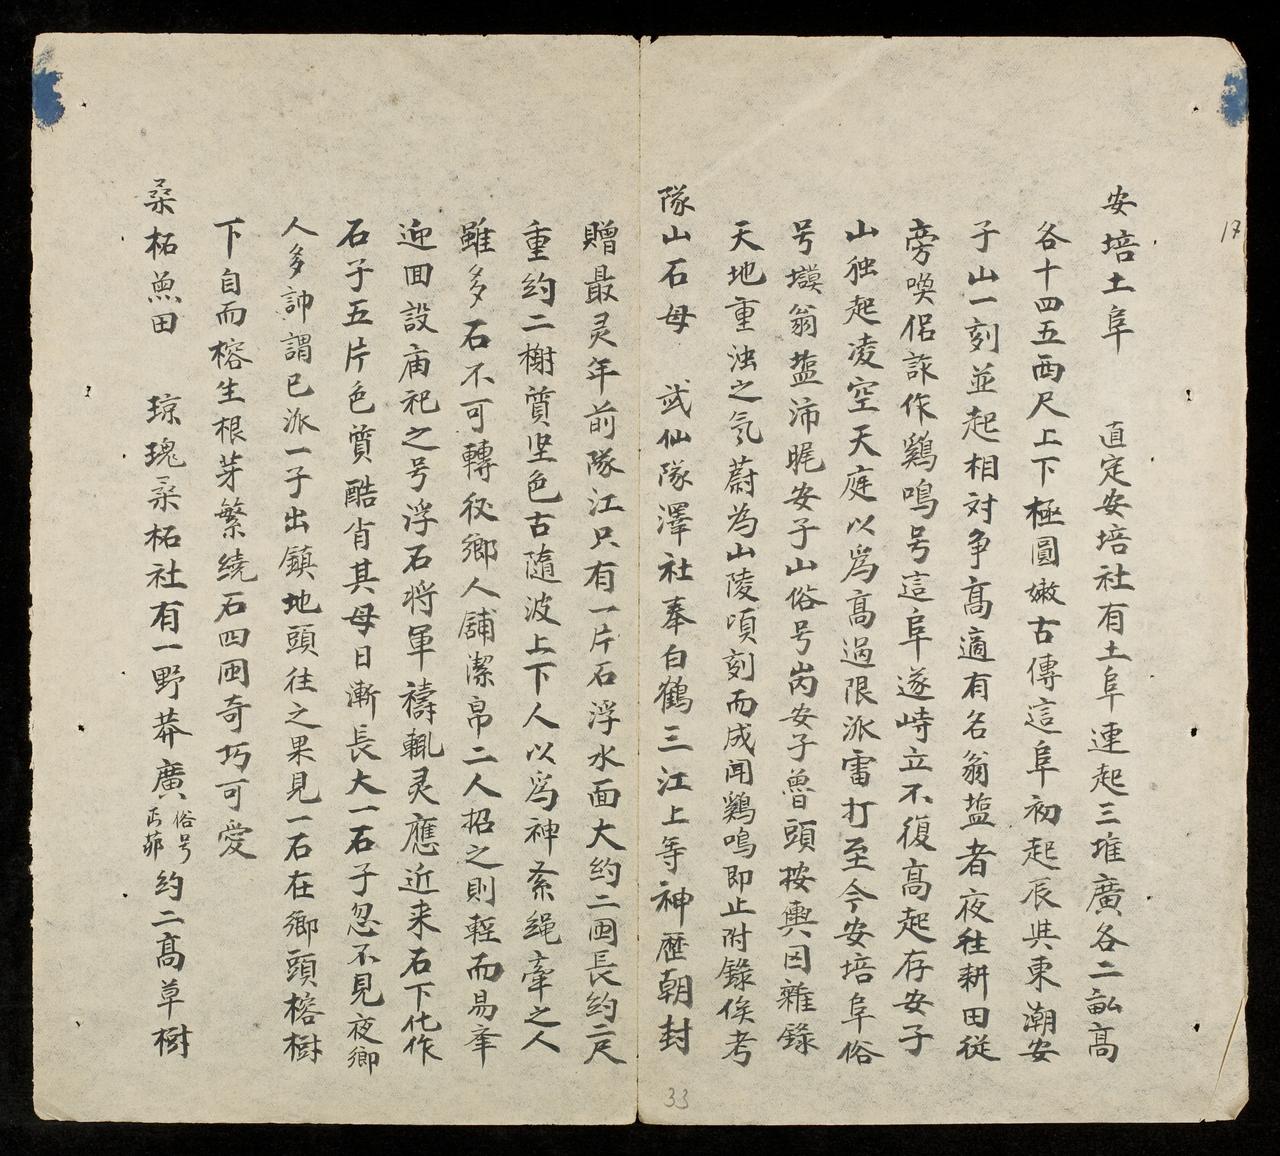 17
安培土阜 直定安培社有土阜連起三堆廣各二畝高
各十四五西尺上下極圓嫩古傳這阜初起辰与東潮安
子山一刻並起相对争高適有名翁塩者夜往耕田從
旁喚侶詠作鷄鳴号這阜遂峙立不復高起存安子
山独起凌空天庭以爲高過限派雷打至今安培阜俗
号㙱翁塩沛眤安子山俗号岗安子魯頭按輿因雜錄
天地重浊之氣蔚为山陵頃刻而成闻鷄鳴即止附錄俟考
隊山石母 武仙隊澤社奉白鶴三江上等神歷朝封
贈最灵年前隊江只有一片石浮水面大約二囬長約二尺
重約二榭質坚色古隨波上下人以爲神紊绳牽之人
雖多石不可轉移鄉人舖潔帛二人招之則輕而易牽
迎回設庙祀之号浮石将軍禱輒灵應近来石下化作
石子五片色質酷肖其母日漸長大一石子忽不見夜鄉
人多訷謂已派一子出鎮地頭往之果見一石在鄉頭榕樹
下自而榕生根芽繁繞石四囬奇巧可愛
桑柘魚田 瓊瑰桑柘社有一野莽廣俗号丐蓈約二高草樹
33